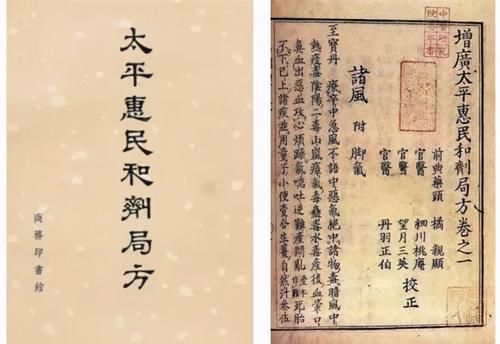 太平惠民和劑局方
商務印書館
增廣太平惠民和劑局方卷之一
前典藥頭 橘 親顯
官醫 細川桃庵
官醫 望月三英 校正
官醫 丹羽正伯
諸風 附 脚氣
至寶丹 療卒中急風不語中惡氣絶中諸物毒暗風中
熱疫毒陰陽二毒山嵐瘴氣毒蠱毒水毒産後血暈口
鼻血出惡血攻心煩躁氣喘吐逆難産悶亂死胎
不下已上諸疾並用童子小便壹合生薑自然汁叁伍